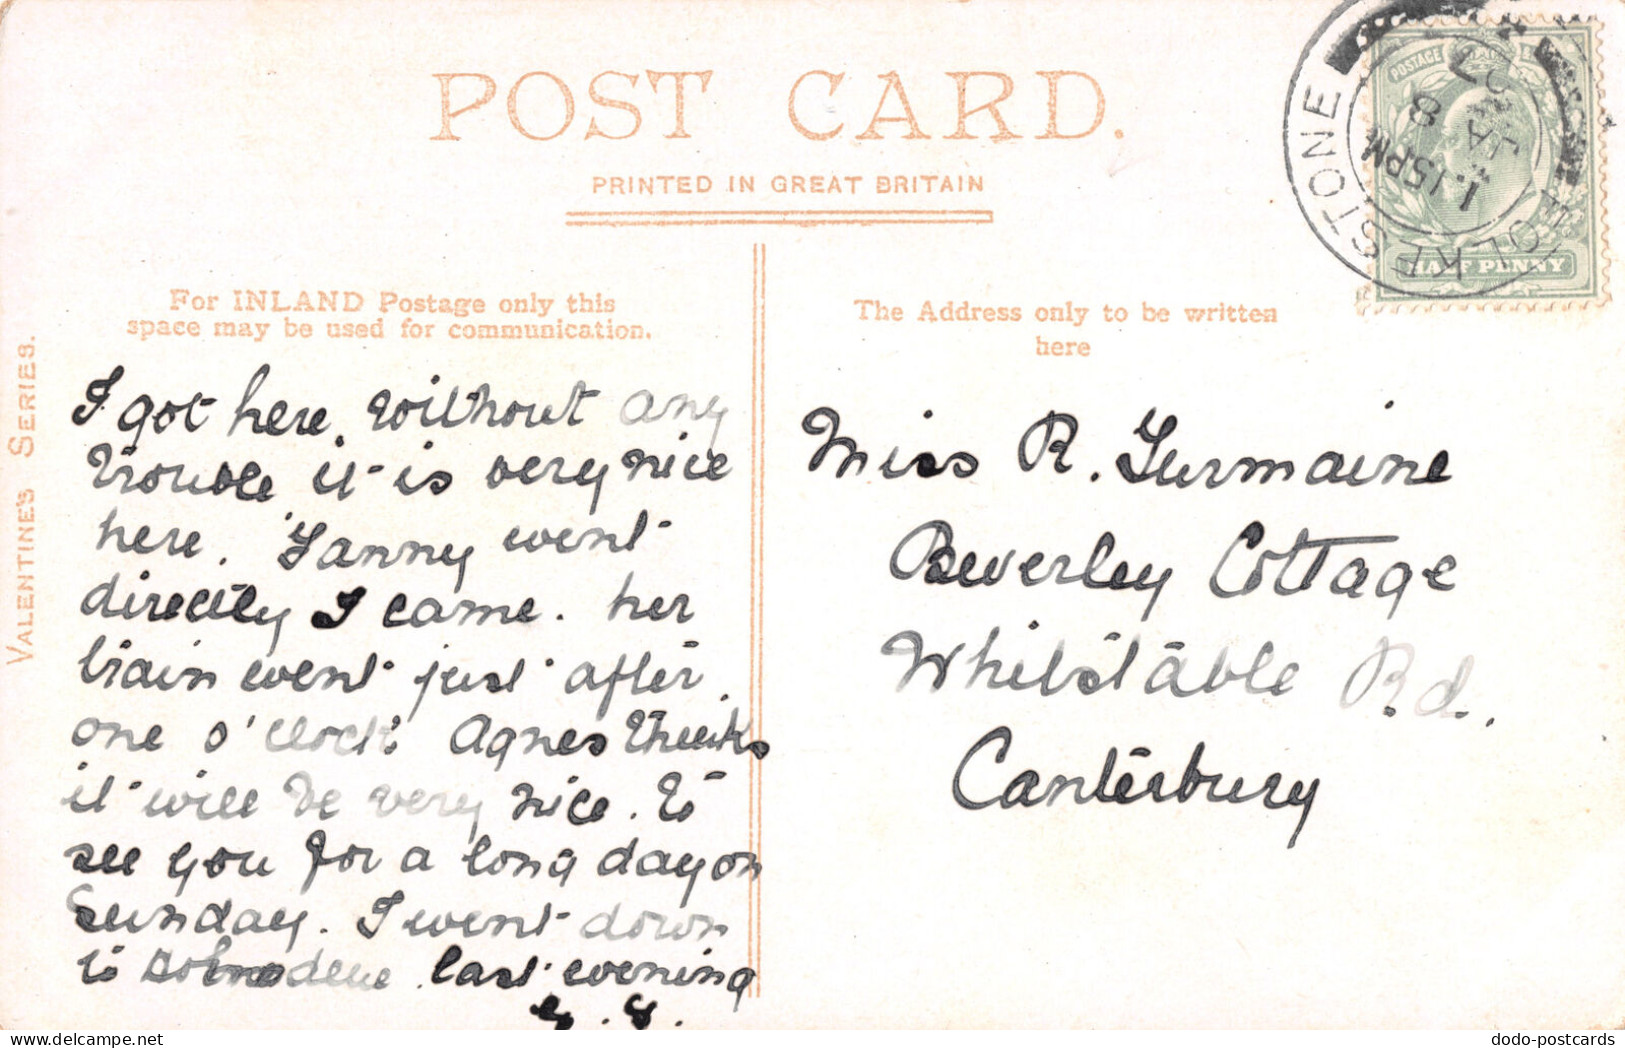 POST CARD.
PRINTED IN GREAT BRITAIN
For INLAND Postage only this
space may be used for communication.
The Address only to be written
here
VALENTINE'S SERIES.
FOLKESTONE
1.15PM
JA 8
07
POSTAGE
HALF PENNY
I got here without any
trouble it is very nice
here. Fanny went
directly I came. her
train went just after
one o'clock. Agnes thinks
it will be very nice. to
see you for a long day on
Sunday. I went down
to last evening
Miss R. Germaine
Beverley Cottage
Whitstable Rd.
Canterbury
dodo-postcards